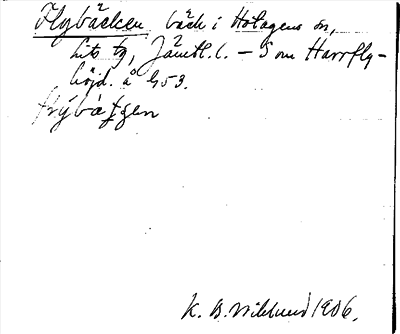 Flybäcken, bäck i Hotagens sn,
Lits tg, Jämtl. l. – S om Harrfly-
höjd. å G 53.
K. B. Wiklund 1906.